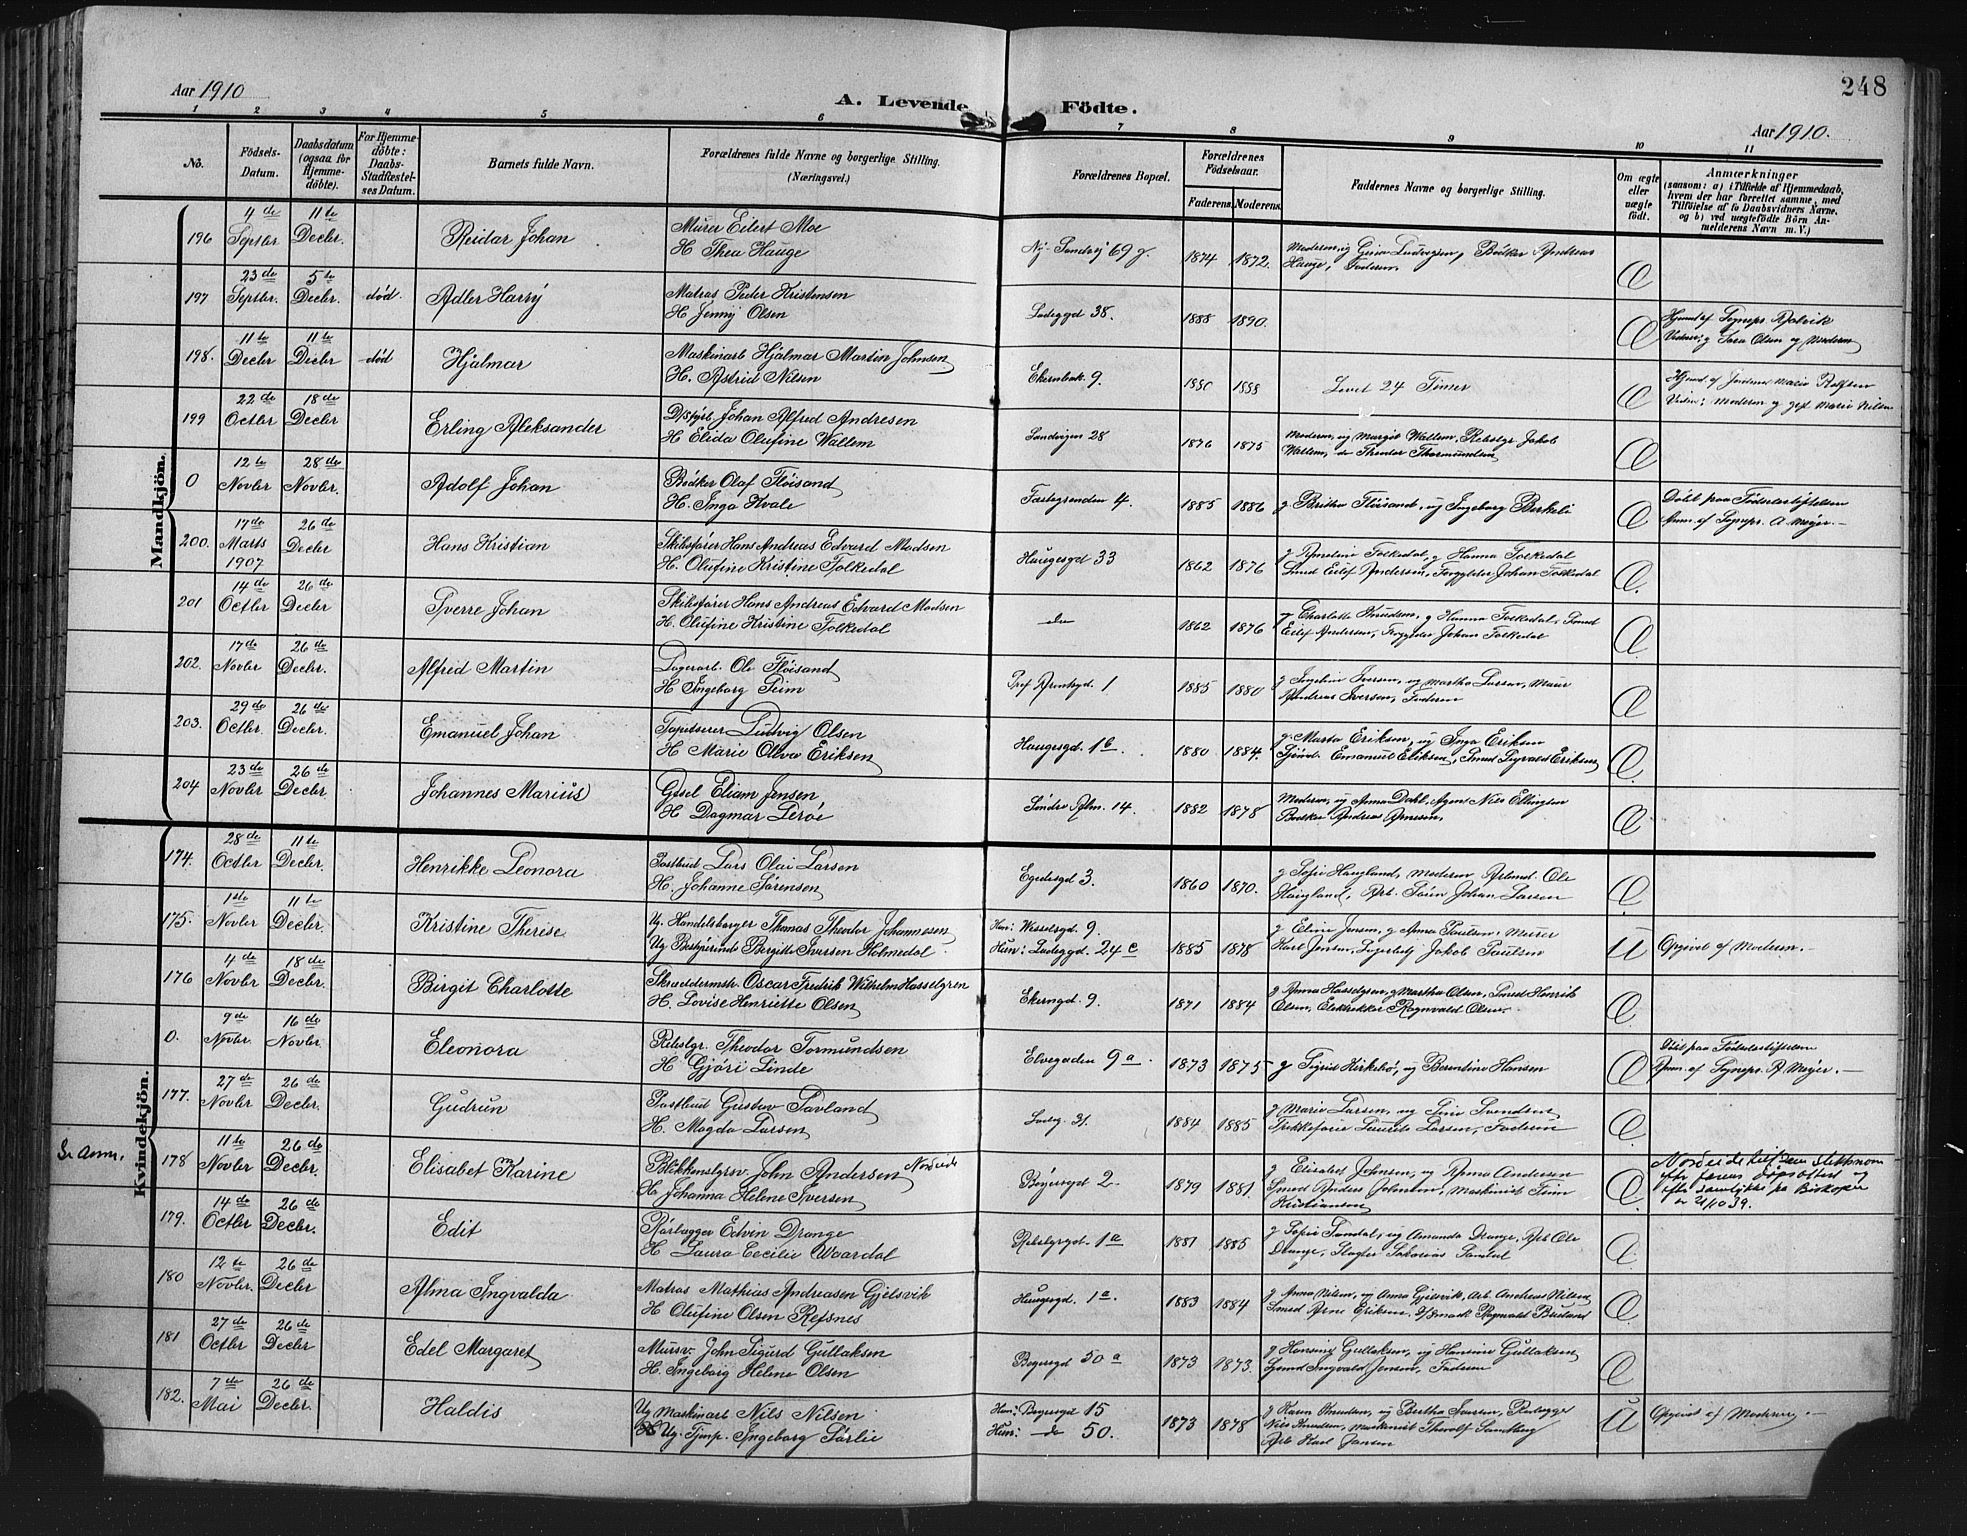 248
Aar 1910
A. Levende Födte.
Aar 1910.
1 2 3 4 5 6 7 8 9 10 11
No.
Födsels-Datum.
Daabsdatum (ogsaa for Hjemmedöbte).
For Hjemmedöbte: Daabs-Stadfæstelses Datum.
Barnets fulde Navn.
Forældrenes fulde Navne og borgerlige Stilling. (Næringsvei.)
Forældrenes Bopæl.
Forældrenes Födselsaar.
Faderens. Moderens.
Faddernes Navne og borgerlige Stilling.
Om ægte eller uægte födt.
Anmærkninger
(saasom: a) i Tilfælde af Hjemmedaab, hvem der har forrettet samme, med Tilföielse af to Daabsvidners Navne, og b) ved uægtefödte Börn Anmelderens Navn m. V.)
Mandkjön.
196 4de Septbr. 11te Decbr. Reidar Johan
Murer Eilert Moe
H Thea Hauge
Ny-Sandvig 69 g. 1874 1872.
Moderen, ug Gina Ludvigsen, Bödker Andreas
Hauge, Faderen
Æ
197 23de Septbr. 5te Decbr. död. Adler Harry
Matros Peder Kristensen
H Jenny Olsen
Ladeggd 38. 1888 1890.
Æ
198. 11te Decbr 11te Decbr död Hjalmar
Maskinarb Hjalmar Martin Johnsen
H. Astrid Nilsen
Ekernbak. 9. 1880 1888 Levet 24 Timer
Æ
199 22de Octbr 18de Decbr. Erling Aleksander
Johan Alfred Andresen
H Elida Olufine Wallem
Sandvigen 28 1876 1875
Moderen, ug Margit Wallem, Rebslgr Jakob
Wallem, do Theodor Thormundsen
Æ
0 12te Novbr 28de Novbr. Adolf Johan
Bödker Olaf Flöisand
H. Inga Kvale
4. 1885 1886
g Britha Flöisand, ug Ingeborg Birkeli
Æ
Döbt paa Födselsstiftelsen
Anm. af A Meyer. —
200. 17de Marts 1907 26de Decbr Hans Kristian
Skibsförer Hans Andreas Edvard Madsen
H. Olufine Kristine Folkedal
Haugesgd 33 1862 1876
g Ameline Folkedal, g Hanna Folkedal
Smed Eilef Andersen, Forgylder Johan Folkedal
Æ.
201 14de Octbr 26de Decbr Sverre Johan
Skibsförer Hans Andreas Edvard Madsen
H. Olufine Kristine Folkedal
do 1862 1876
g Charlotte Knudsen, g Hanna Folkedal, Smed
Eilef Andersen, Johan Folkedal
Æ.
202. 17de Novbr 26de Decbr. Alfred Martin
Lagerarb. Ole Flöisand
H Ingeborg Feim
1 1885 1880
g Ingeline Iversen, ug Martha Larsen, Murer
Andreas Iversen, Faderen
Æ
203. 29de Octbr. 26de Decbr. Emanuel Johan
Tapetserer Ludvig Olsen
H. Marie Oliva Eriksen
Haugesgd. 1 b. 1880 1884.
g. Marta Eriksen, ug Inga Eriksen
Emanuel Eriksen, Smed Sigvald Eriksen
Æ.
204 23de Novbr 26de Decbr. Johannes Marius
Gjsel Eliam Jensen
H Dagmar Leröe
Söndre Alm. 14. 1882 1878
Moderen, ug Anna Dahl, Agent Nils Ellingsen
Bödker Andreas Arnesen,
Æ
Kvindekjön.
174. 28de Octbr 11te Decbr. Henrikke Leonora
Postbud Lars Olai Larsen
H. Johanne Sörensen
Egedesgd 3. 1860 1870.
g Sofie Haugland, Moderen, Arbmd. Ole
Haugland, Arb. Sörin Johan Larsen
Æ.
175. 1ste Novbr 11te Decbr. Kristine Therese
Ug. Handelsborger Thomas Theodor Johannesen
Ug Bestyrerinde Bergitte Iversen Holmedal
Han: Wesselsgd. 9.
Hun: Ladeggd. 24 c 1885 1878
g Eline Jensen, g Anna Paulsen, Murer
Karl Jensen, Jakob Paulsen
U
Opgivet af Moderen. —
176 4de Novbr 18de Decbr. Birgit Charlotte
Skræddermstr. Oscar Fredrik Wilhelm Hasselgren
H. Lovise Henriette Olsen
Ekerngd. 9. 1871 1884
g Anna Hasselgren, g Martha Olsen, Smed Henrik
Olsen, Elektrikker Ragnvald Olsen.
Æ
0. 9de Novbr. 16de Novbr. Eleonora
Rebslgr. Theodor Tormundsen
H Gjöri Linde
Elvegaden 9 a. 1873 1875
g Sigrid Kirkebö, ug Berentine Hansen
Æ
Döbt paa Födselsstiftelsen
Anm. af A Meyer. —
177. 27de Novbr 26de Decbr. Gudrun
Postbud Gustav Tavland
H. Magda Larsen
Ladeg. 31. 1884 1885
g Marie Larsen, ug Sina Svendsen
Laurits Larsen, Faderen
Æ.
Se anm.
178 11te Novbr 26de Decbr. Elisabet Karine
Blikkenslgrsv. John Andersen Nordeide
H. Johanna Helene Iversen
Böyersgd 2. 1879 1881.
g Elisabet Johnsen, ug Anna Andersen
Smed Anders Johnsen, Maskinist Feim
Kristiansen
Æ.
Nordeide tilf. som slektsnavn
efter farens dåpsattest og
efter samtykke fra Biskopen
av 21/10 39.
179. 14de Octbr 26de Decbr. Edit
Rörlægger Edvin Drange
H. Laura Cecilie Waardal
Rebslgrgd. 1 a 1881 1885
g Sofie Sandal, ug Amanda Drange, Arb Ole
Drange, Slagter Sakarias Sandal
Æ.
180 12te Novbr. 26de Decbr Alma Ingvalda
Matros Mathias Andreasen Gjelsvik
H Olufine Olsen Refsnes
Haugesgd. 1 a. 1883 1884
g Anna Nilsen, ug Anna Gjelsvik, Arb. Andreas Nilsen
Smed Arne Eriksen, Ragnvald
Æ
181 27de Octbr 26de Decbr Edel Margaret
Mursv. John Sigurd Gullaksen
H. Ingeborg Helene Olsen
Böyersgd 50 a 1873 1873.
g Hansine Gullaksen, ug Hansine Gullaksen
Ingvald Jensen, Faderen
Æ
182. 7de Mai 26de Decbr. Haldis
Ug Maskinarb Nils Nilsen
Ug. Ingeborg Sörlie
Han: Böyersgd 15
Hun: do 50. 1873 1878
g Karen Knudsen, ug Bertha Iversen,
Nils Knudsen, Maskinist Thorolf Sandberg
Arb Karl Jansen
U
Opgivet af Moderen —